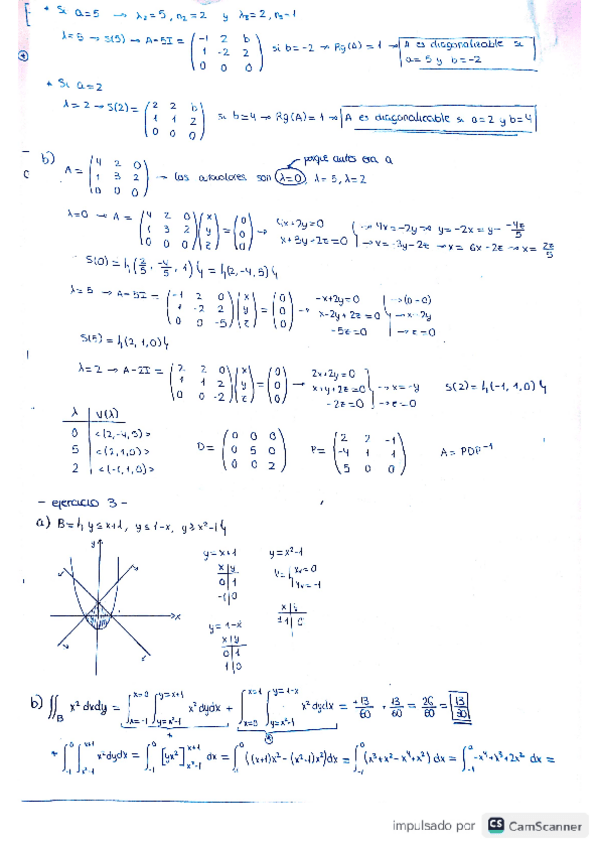 * Si a=5 → λ₁=5, n₁=2 y λ₂=2, n₂=1
λ=5 → S(5) → A-5I = (-1 2 b / 1 -2 2 / 0 0 0) si b=-2 → Rg(A)=1 → A es diagonalizable si a=5 y b=-2
* Si a=2
λ=2 → S(2) = (2 2 b / 1 1 2 / 0 0 0) si b=4 → Rg(A)=1 → A es diagonalizable si a=2 y b=4
porque antes era a
b) A = (4 2 0 / 1 3 2 / 0 0 0) → los autovalores son λ=0, λ=5, λ=2
λ=0 → A = (4 2 0 / 1 3 2 / 0 0 0)(x / y / z) = (0 / 0 / 0) → 4x+2y=0 → 4x=-2y → y=-2x = y=-4z/5
x+3y-2z=0 → x=-3y-2z → x=6x-2z → x=2z/5
S(0) = {(2/5, -4/5, 1)} = {(2,-4,5)}
λ=5 → A-5I = (-1 2 0 / 1 -2 2 / 0 0 -5)(x / y / z) = (0 / 0 / 0) → -x+2y=0 → (0=0)
x-2y+2z=0 → x=2y
-5z=0 → z=0
S(5) = {(2,1,0)}
λ=2 → A-2I = (2 2 0 / 1 1 2 / 0 0 -2)(x / y / z) = (0 / 0 / 0) → 2x+2y=0
x+y+2z=0 → x=-y S(2) = {(-1,1,0)}
-2z=0 → z=0
λ | V(λ)
0 | <(2,-4,5)>
5 | <(2,1,0)>
2 | <(-1,1,0)>
D = (0 0 0 / 0 5 0 / 0 0 2) P = (2 2 -1 / -4 1 1 / 5 0 0) A = PDP⁻¹
- ejercicio 3 -
a) B = {y≤x+1, y≤1-x, y≥x²-1}
y
x
y=x+1 y=x²-1
x|y V={xv=0
0|1 yv=-1
-1|0
y=1-x
x|y
0|1
1|0
x|y
±1|0
b) ∬_B x² dxdy = ∫_{x=-1}^{x=0} ∫_{y=x²-1}^{y=x+1} x² dydx + ∫_{x=0}^{x=1} ∫_{y=x²-1}^{y=1-x} x² dydx = 13/60 + 13/60 = 26/60 = 13/30
* ∫_{-1}^{0} ∫_{x²-1}^{x+1} x² dydx = ∫_{-1}^{0} [yx²]_{x²-1}^{x+1} dx = ∫_{-1}^{0} ((x+1)x² - (x²-1)x²)dx = ∫_{-1}^{0} (x³+x²-x⁴+x²) dx = ∫_{-1}^{0} -x⁴+x³+2x² dx =
impulsado por CS CamScanner